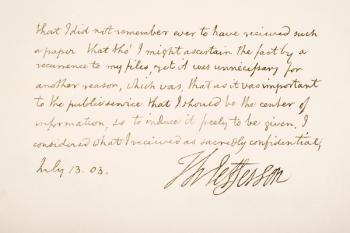 that I did not remember ever to have recieved such
a paper. that tho' I might ascertain the fact by a
recurrence to my files, yet it was unnecessary for
another reason, which was, that as it was important
to the public service that I should be the center of
information, so to induce it freely to be given, I
considered what I received as sacredly confidential,
July 13. 03.
Th Jefferson